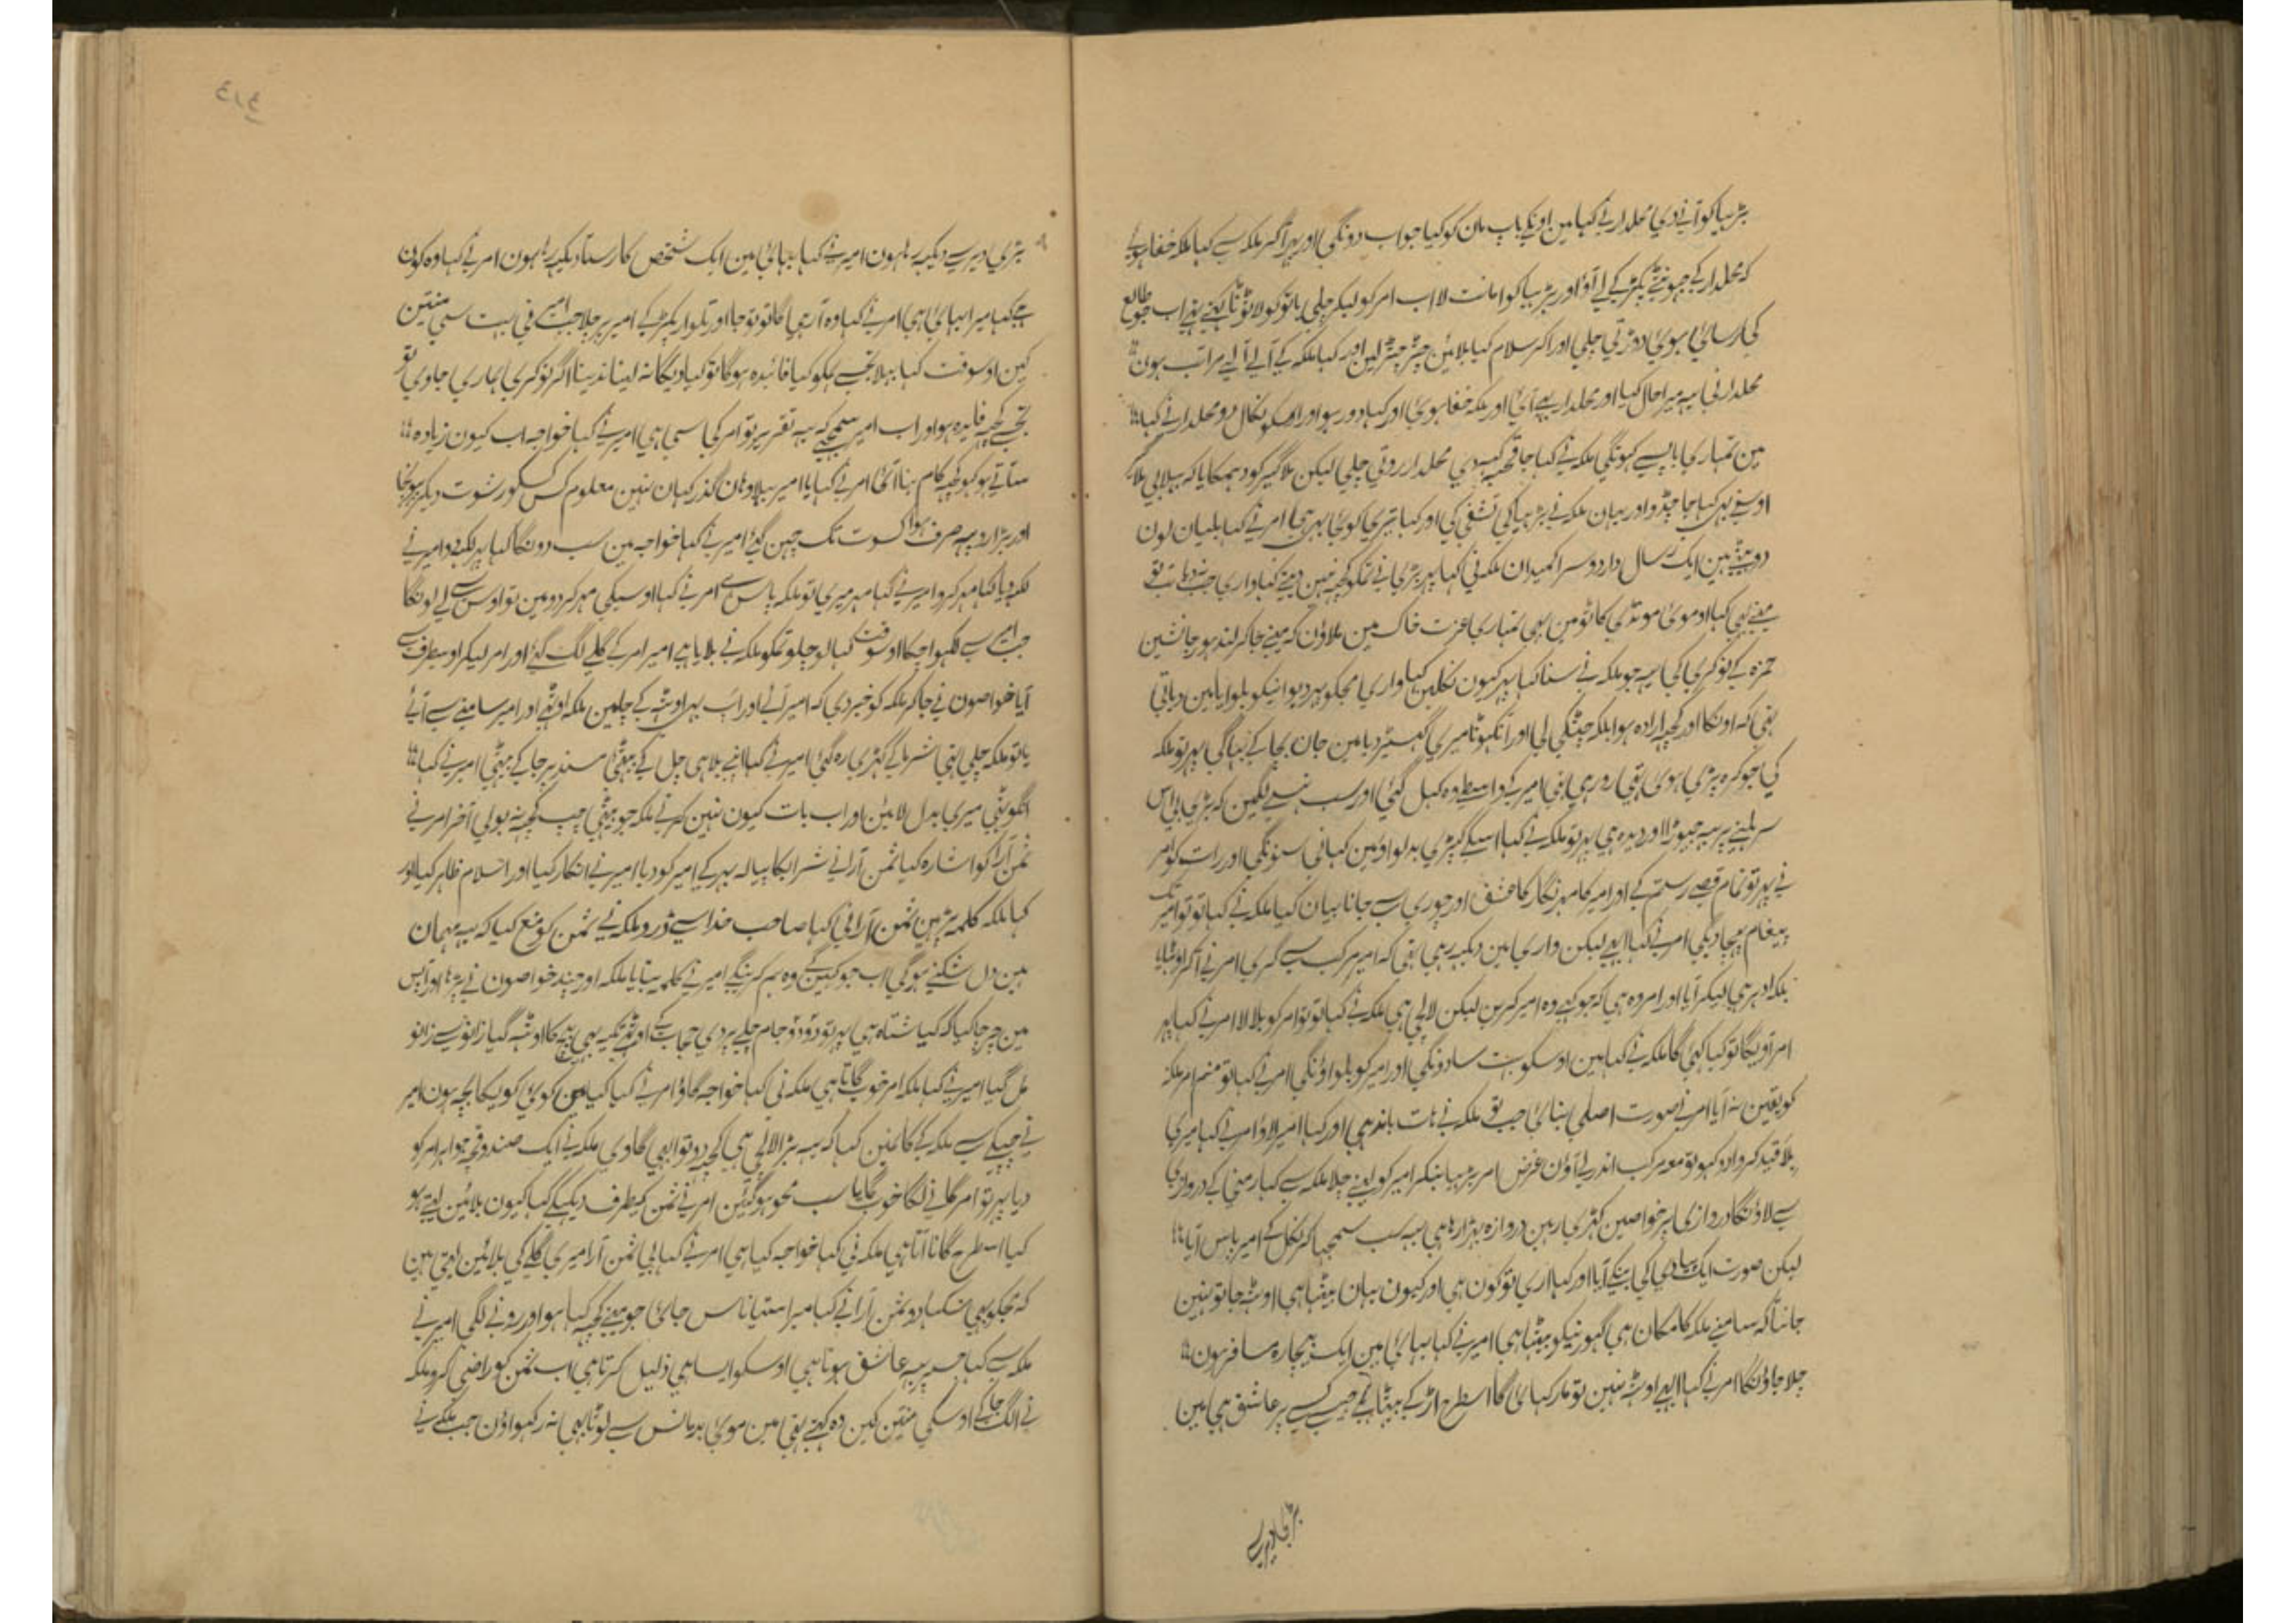 بڑہیا کو آنے دی محلدار نے کہا مین اونکے باپ مان کو کیا جواب دونگی اور پہر آکر ملکہ سے کہا ملکہ خفا ہوے
کہ محلدار کے جہونٹے پکڑ کے لے آؤ اور بڑہیا کو امانت لا اب امر کو لیکر چلی
کی رسائی ہوئی دوڑتی چلی اور اکر سلام کیا بلائین چٹر چٹر لین اور کہا ملکہ کے آلے آلے مراتب ہون
محلدار نی یہ میرا حال کیا اور محلدار بھی آئی اور ملکہ خفا ہوئی اور کہا دور ہو اور اسکو نکال دو محلدار نے کہا
مین تمہاری باپ سے کہونگی ملکہ نے کہا جا قحبہ کہدی محلدار روتی چلی لیکن ملاگیر کو دہمکایا کہ بہلا بی ملاگیر
اوسنے بہی کہا جا چڈو اور یہان ملکہ نے بڑہیا کی تشفی کی اور کہا تیری کوئی بہی ہی امر نے کہا بلیان لون
دو بیٹے ہین ایک رسال دار دوسرا کمیدان ملکہ نی کہا پہر بڑی بی تمکو کچہہ نہین دیتے کہا واری
مینے بہی کہا او موئی مونڈی کاٹو مین بہی تمہاری عزت خاک مین ملاؤن کہ مینے جاکر لندہور جانشین
حمزہ کے نوکری کی یہ جو ملکہ نے سنا کہا پہر کیون نکلین کہا واری مجکو پیر دبوانیکو بلوایا مین دباتی
تہی کہ اونکا اور کچہہ ارادہ ہوا بلکہ چٹکی لی اور انگہوٹا میری گہسیڑ دیا مین جان بچا کے بہاگی پہر تو ملکہ
کی جو گرہ پڑی ہوئی تہی رو رہی تہی امیر کے واسطے وہ کہل گئی اور سب ہنسنے لگین کہ بڑی بی اس
سر ہلنے پر یہ چہوڑا اور دیدہ ہی پہر تو ملکہ نے کہا اسکے کپڑی بدلواؤ مین کہانی سنونگی اور رات کو امر
نے پہر تو تمام قصے رستم کے اور امیر کا مہرنگار کا عشق اور چوری سے جانا بیان کیا ملکہ نے کہا تو تو امیر تک
پیغام پہنچا دیگی امر نے کہا ابہی لیکن واری مین دیکہہ رہی تہی کہ امیر مرکب سے گری امر نے آکر اوٹہایا
بلکہ ادہر ہی لیکر آیا اور امر وہ ہی کہ جو کہے وہ امیر کرین لیکن لالچی ہی ملکہ نے کہا تو تو امر کو بلا لا امر نے کہا پہر
امر آویگا تو کیا کہئی گا ملکہ نے کہا مین اوسکو بہت سا دونگی اور امیر کو بلواؤنگی امر نے کہا تو منم امر ملکہ
کو یقین نہ آیا امر نے صورت اصلی بنائی جب تو ملکہ نے ہات باندہی اور کہا امیر لاؤ امر نے کہا میری
بلا قید کروا دو کہو تو معہ مرکب اندر لے آؤن غرض امر بڑہیا بنکر امیر کو لینے چلا ملکہ سے کہا رمنی کے دروازی
سے لاؤنگا دروازی پر خواصین کہڑی رہین دروازہ بہڑا رہے یہ سب سمجہا کر نکل کے امیر پاس آیا
لیکن صورت ایک پیادی کی بنکے آیا اور کہا اری تو کون ہی اور کیون یہان بیٹہا ہی اوٹہہ جا تو نہین
جانتا کہ سامنے ملکہ کا مکان ہی گہورنیکو بیٹہا ہی امیر نے کہا بہائی مین ایک بیچارہ مسافر ہون
چلا جاؤنگا امر نے کہا ابہی اوٹہہ نہین تو مار کہائی گا اسطرح اڑ کے بیٹہا ہے جیسے کسی پر عاشق ہی مین
بڑی دیر سے
۴۱۴
بڑی دیر سے دیکہہ رہا ہون امیر نے کہا بہائی مین ایک شخص کا رستا دیکہہ رہا ہون امر نے کہا وہ کون
ہے کہا میرا بہائی ہی امر نے کہا وہ آرہیگا تو تو جا اور تلوار پکڑ کے امیر پر چلا جب امیر نی بہت سی منتین
کین اوسوقت کہا بہلا تجسے ہمکو کیا فائدہ ہوگا تو کیا دیگا نہ لینا نہ دینا اگر نوکری ہماری جاوی تو
تجسے کچہہ فایدہ ہو اور اب امیر سمجہے کہ یہ تقریر تو امر کی سی ہی امیر نے کہا خواجہ اب کیون زیادہ
ستاتے ہو کہو کچہہ کام بنا آئی امر نے کہا یا امیر بہلا وہان گذر کہان نہین معلوم کس کسکو رشوت دیکر پہونچا
اور ہزار روپیہ صرف ہوا کسوت تک چہن گئی امیر نے کہا خواجہ مین سب دونگا کہا پہر لکہدو امیر نے
لکہدیا کہا مہر کرو امیر نے کہا مہر میری تو ملکہ پاس ہے امر نے کہا اوسیکی مہر کردو مین تو اوس سے لے لونگا
جب امیر سے لکہوا چکا اوسوقت کہا لو چلو تمکو ملکہ نے بلایا ہے امیر امر کے گلے لگ گئے اور امر لیکر اوسطرف سے
آیا خواصون نے جاکر ملکہ کو خبر دی کہ امیر آئے اور اب پہر اوٹہہ کے چلین ملکہ اوٹہی اور امیر سامنے سے آئے
یا تو ملکہ چلی تہی شرما کے کہڑی رہ گئی امیر نے کہا اپنے بلا ہی چل کے بیٹہی مسند پر جا کے بیٹہی امیر نے کہا
انگوٹہی میری بدل لائین اور اب بات کیون نہین کرتے ملکہ جو بیٹہی چپ کچہہ نہ بولی آخر امر نے
ثمن آرا کو اشارہ کیا ثمن آرا نے شراب کا پیالہ بہر کے امیر کو دیا امیر نے انکار کیا اور اسلام ظاہر کیا اور
کہا ملکہ کلمہ پڑہین ثمن آرا نی کہا صاحب خدا سے ڈرو ملکہ نے ثمن کو منع کیا کہ یہ مہمان
ہین دل شکنے ہوگی اب جو کہین گے وہ ہم کرینگے امیر نے کلمہ بتایا ملکہ اور چند خواصون نے پڑہا اور آپس
مین چرچا کیا کہ کیا شتاہ ہی پہر تو دو دو جام چلے پردی حجاب کے اوٹہے تکیہ بہی بیچ کا اوٹہہ گیا زانو سے زانو
مل گیا امیر نے کہا ملکہ امر خوب گاتا ہی ملکہ نی کہا خواجہ گاؤ امر نے کہا کیا مین کوئی گویکا بچہ ہون امیر
نے چپکے سے ملکہ کے کانمین کہا کہ یہ بڑا لالچی ہی کچہہ دو تو ابہی گاوی ملکہ نے ایک صندوقچہ جواہر امر کو
دیا پہر تو امر گانے لگا خوب گایا سب محو ہوگئین امر نے ثمن کیطرف دیکہکے کہا کیون بلائین لیتے ہو
کیا اسطرح گانا آتا ہی ملکہ نی کہا خواجہ کیا ہی امر نے کہا بی ثمن آرا میری گلے کی بلائین لیتی ہین
کہ مجکو بہی سکہا دو ثمن آرا نے کہا میرا ستیاناس جائی جو مینے کچہہ کہا ہو اور رونے لگی امیر نے
ملکہ سے کہا جسپر یہ عاشق ہوتا ہی اوسکو ایسا ہی ذلیل کرتا ہی اب ثمن کو راضی کرو ملکہ
نے الگ جا کے اوسکی منتین کین وہ کہتے تہی مین موئی بدمانس سے لوٹا بہی نہ رکہواؤن جب ملکہ نے